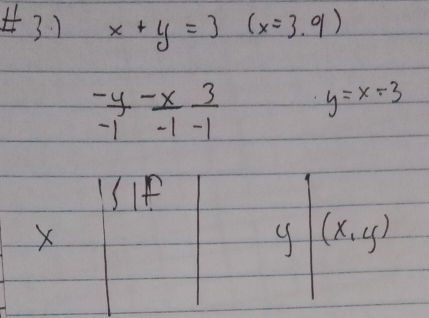 #3.) x + y = 3 (x=3.9)
-y/-1 -x/-1 3/-1 y=x-3
x SIF y (x,y)